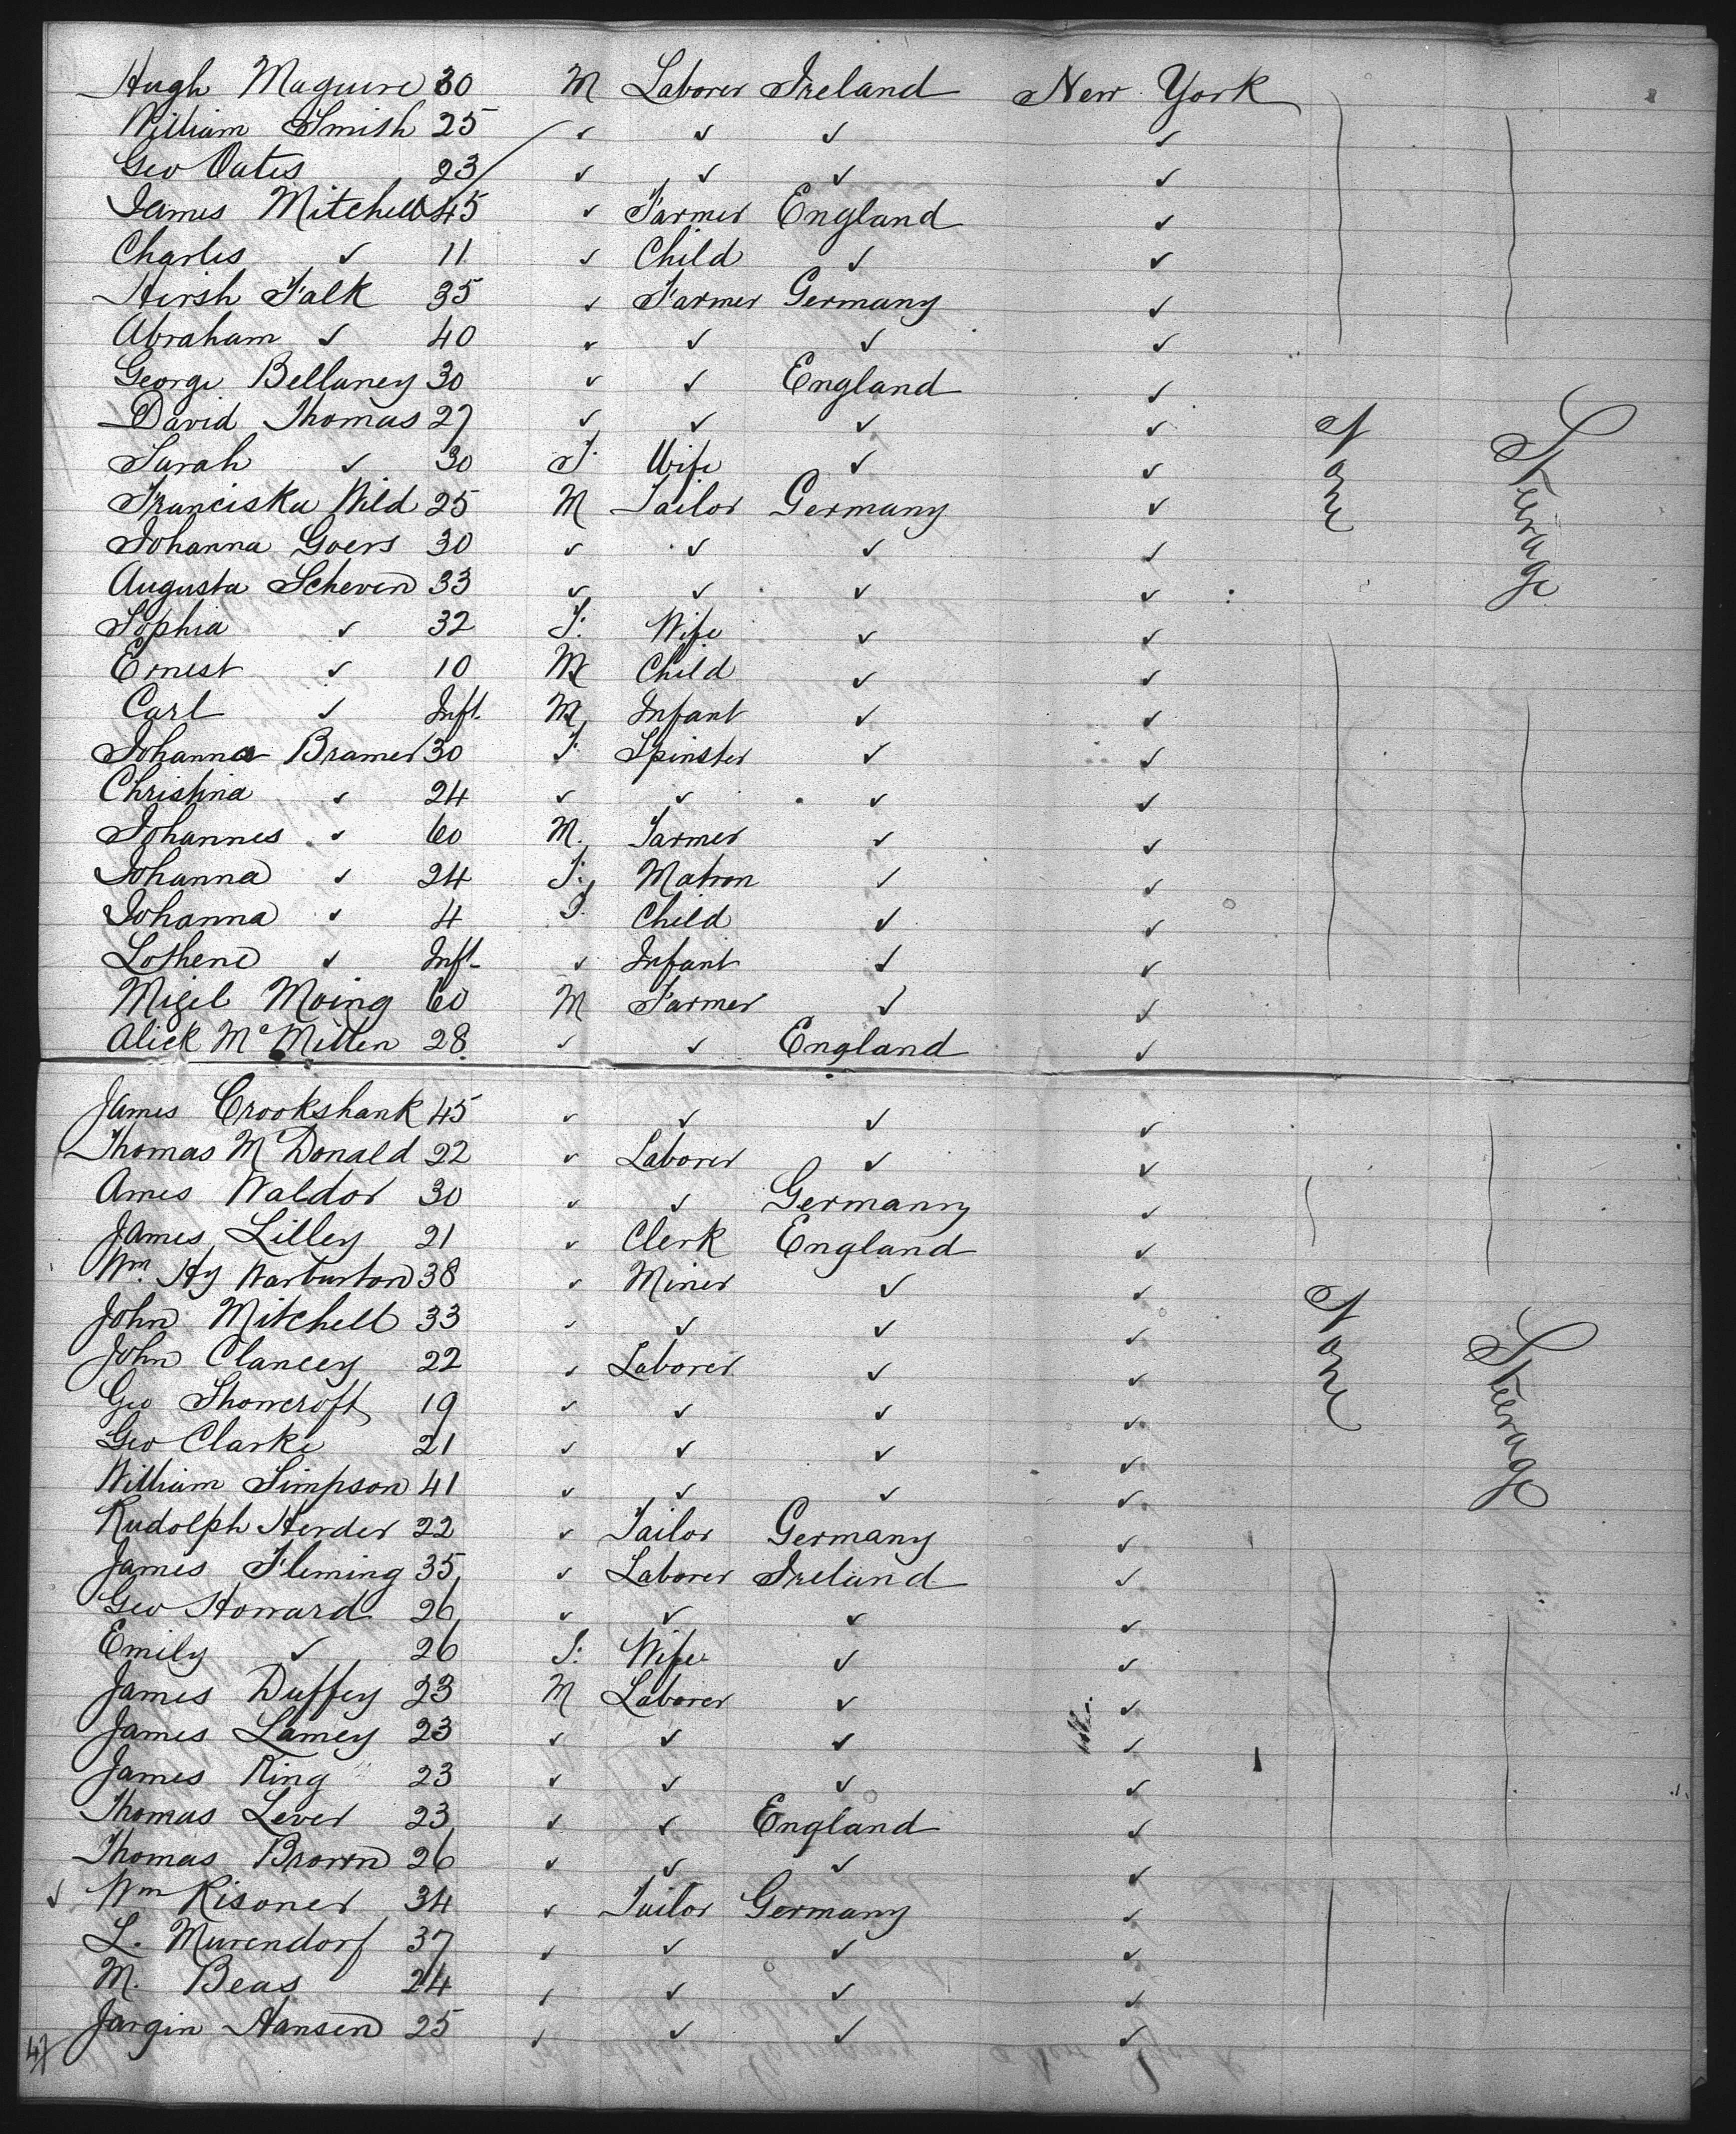 Hugh Maguire 30 M Laborer Ireland New York
William Smith 25 ✓ ✓ ✓ ✓
Geo Oates 23 ✓ ✓ ✓ ✓
James Mitchell 45 ✓ Farmer England ✓
Charles ✓ 11 ✓ Child ✓ ✓
Hirsh Falk 35 ✓ Farmer Germany ✓
Abraham ✓ 40 ✓ ✓ ✓ ✓
George Bellaney 30 ✓ ✓ England ✓
David Thomas 27 ✓ ✓ ✓ ✓
Sarah ✓ 30 F. Wife ✓ ✓
Franciska Wild 25 M Tailor Germany ✓
Johanna Goers 30 ✓ ✓ ✓ ✓
Augusta Scheven 33 ✓ ✓ ✓ ✓
Sophia ✓ 32 F. Wife ✓ ✓
Ernest ✓ 10 M Child ✓ ✓
Carl ✓ Inft. M Infant ✓ ✓
Johanna Bramer 30 F. Spinster ✓ ✓
Christina ✓ 24 ✓ ✓ ✓ ✓
Johannes ✓ 60 M. Farmer ✓ ✓
Johanna ✓ 24 F. Matron ✓ ✓
Johanna ✓ 4 F. Child ✓ ✓
Lothene ✓ Inft. ✓ Infant ✓ ✓
Moing 60 M Farmer ✓ ✓
Alick McMillen 28 ✓ ✓ England ✓
None
Steerage
James Crookshank 45 ✓ ✓ ✓ ✓
Thomas McDonald 22 ✓ Laborer ✓ ✓
Ames Waldor 30 ✓ ✓ Germany ✓
James Lilley 21 ✓ Clerk England ✓
Wm. Hy Warburton 38 ✓ Miner ✓ ✓
John Mitchell 33 ✓ ✓ ✓ ✓
John Clancey 22 ✓ Laborer ✓ ✓
Geo Showcroft 19 ✓ ✓ ✓ ✓
Geo Clarke 21 ✓ ✓ ✓ ✓
William Simpson 41 ✓ ✓ ✓ ✓
Rudolph Herder 22 ✓ Tailor Germany ✓
James Fleming 35 ✓ Laborer Ireland ✓
Geo Howard 26 ✓ ✓ ✓ ✓
Emily ✓ 26 F. Wife ✓ ✓
James Duffey 23 M Laborer ✓ ✓
James Lamey 23 ✓ ✓ ✓ ✓
James King 23 ✓ ✓ ✓ ✓
Thomas Lever 23 ✓ ✓ England ✓
Thomas Brown 26 ✓ ✓ ✓ ✓
✓ Wm Risoner 34 ✓ Tailor Germany ✓
L. Murendorf 37 ✓ ✓ ✓ ✓
M. Beas 24 ✓ ✓ ✓ ✓
Jargin Hansen 25 ✓ ✓ ✓ ✓
47
None
Steerage